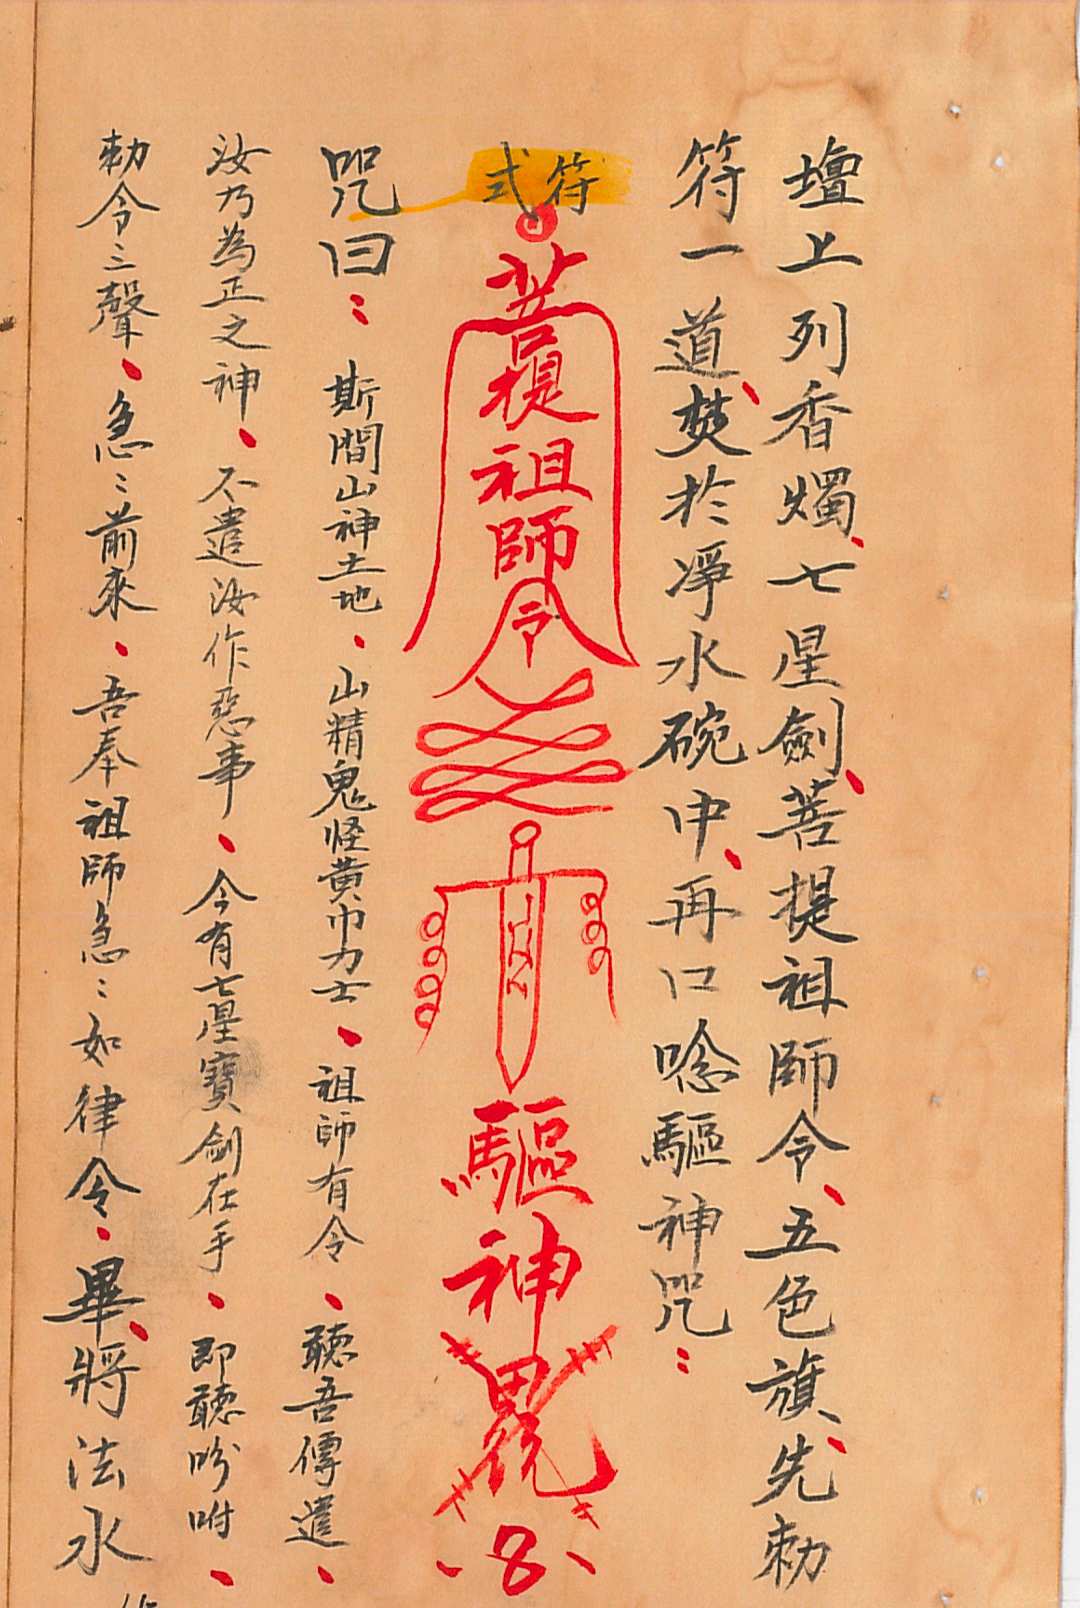 壇上列香燭、七星劍、菩提祖師令、五色旗、先勅
符一道、焚於淨水碗中、再口唸驅神咒：
符式
菩提祖師令
驅神
咒曰：斯間山神土地、山精鬼怪黃巾力士、祖師有令、聽吾傳遣、
汝乃為正之神、不遣汝作惡事、今有七星寶劍在手、即聽吩咐、
勅令三聲、急:前來、吾奉祖師急:如律令、畢、將法水